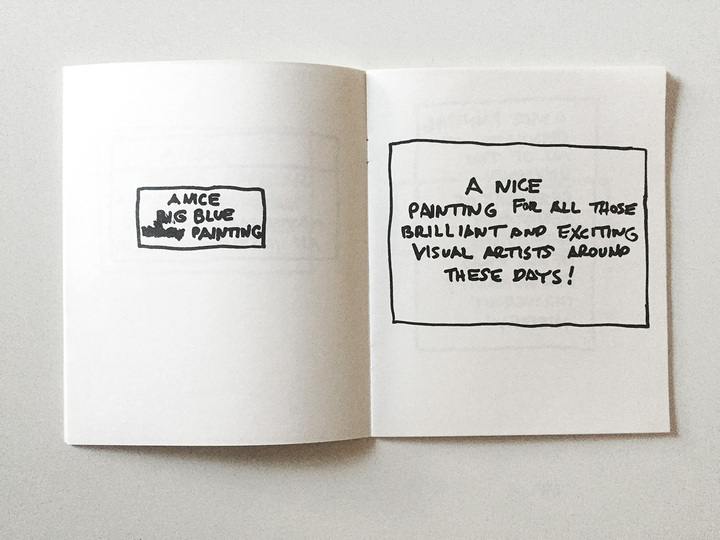 A NICE
BIG BLUE
PAINTING
A NICE
PAINTING FOR ALL THOSE
BRILLIANT AND EXCITING
VISUAL ARTISTS AROUND
THESE DAYS!